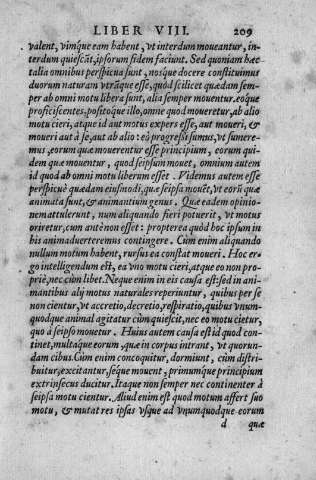 LIBER VIII. 209
valent, vimque eam habent, vt interdum moueantur, in-
terdum quiescāt, ipsorum fidem faciunt. Sed quoniam hæc
talia omnibus perspicua sunt, nosque docere constituimus
duorum naturam vtrāque esse, quòd scilicet quædam sem-
per ab omni motu libera sunt, alia semper mouentur. eoque
proficiscentes, positoque illo, omne quod moueretur, ab alio
motu cieri, atque id aut motus expers esse, aut moueri, &
moueri aut à se, aut ab alio: eò progressi sumus, vt sumere-
mus, eorum quæ mouerentur esse principium, eorum qui-
dem quæ mouentur, quod seipsum mouet, omnium autem
id quod ab omni motu liberum esset. Videmus autem esse
perspicuè quædam eiusmodi, quæ seipsa mouēt, vt eorū quæ
animata sunt, & animantium genus. Quæ eadem opinio-
nem attulerunt, num aliquando fieri potuerit, vt motus
oriretur, cum antè non esset: propterea quòd hoc ipsum in
his animaduerteremus contingere. Cùm enim aliquando
nullum motum habent, rursus ea constat moueri. Hoc er-
go intelligendum est, ea vno motu cieri, atque eo non pro-
priè, nec cùm libet. Neque enim in eis causa est: sed in ani-
mantibus alij motus naturales reperiuntur, quibus per se
non cientur, vt accretio, decretio, respiratio, quibus vnum-
quodque animal agitatur cùm quiescit, nec eo motu cietur,
quo à seipso mouetur. Huius autem causa est id quod con-
tinet, multaque eorum, quæ in corpus intrant, vt quorun-
dam cibus. Cùm enim concoquitur, dormiunt, cùm distri-
buitur, excitantur, séque mouent, primumque principium
extrinsecus ducitur. Itaque non semper nec continenter à
seipsa motu cientur. Aliud enim est quod motum affert suo
motu, & mutat res ipsas vsque ad vnumquodque eorum
d quæ